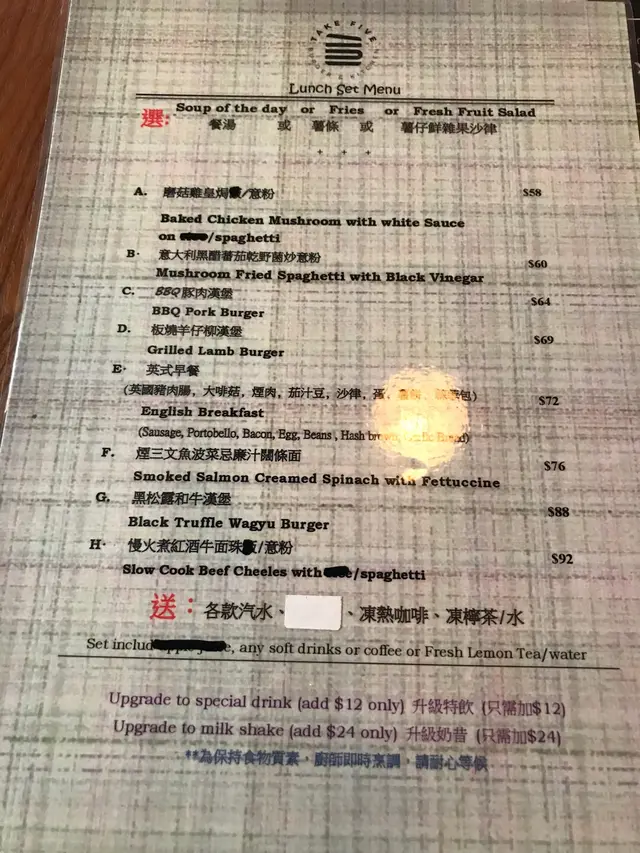 TAKE FIVE
Lunch Set Menu
選: Soup of the day or Fries or Fresh Fruit Salad
餐湯 或 薯條 或 薯仔鮮雜果沙律
+ + +
A. 磨菇雞皇焗 /意粉 $58
Baked Chicken Mushroom with white Sauce
on /spaghetti
B. 意大利黑醋蕃茄乾野菌炒意粉 $60
Mushroom Fried Spaghetti with Black Vinegar
C. BBQ豚肉漢堡 $64
BBQ Pork Burger
D. 板燒羊仔柳漢堡 $69
Grilled Lamb Burger
E. 英式早餐
(英國豬肉腸, 大啡菇, 煙肉, 茄汁豆, 沙律, 蛋, 包) $72
English Breakfast
(Sausage, Portobello, Bacon, Egg, Beans, Hash brown, Bread)
F. 煙三文魚波菜忌廉汁闊條面 $76
Smoked Salmon Creamed Spinach with Fettuccine
G. 黑松露和牛漢堡 $88
Black Truffle Wagyu Burger
H. 慢火煮紅酒牛面珠 /意粉 $92
Slow Cook Beef Cheeles with /spaghetti
送：各款汽水、 、凍熱咖啡、凍檸茶/水
Set includ e, any soft drinks or coffee or Fresh Lemon Tea/water
Upgrade to special drink (add $12 only) 升級特飲 (只需加$12)
Upgrade to milk shake (add $24 only) 升級奶昔 (只需加$24)
**為保持食物質素，廚師即時烹調，請耐心等候